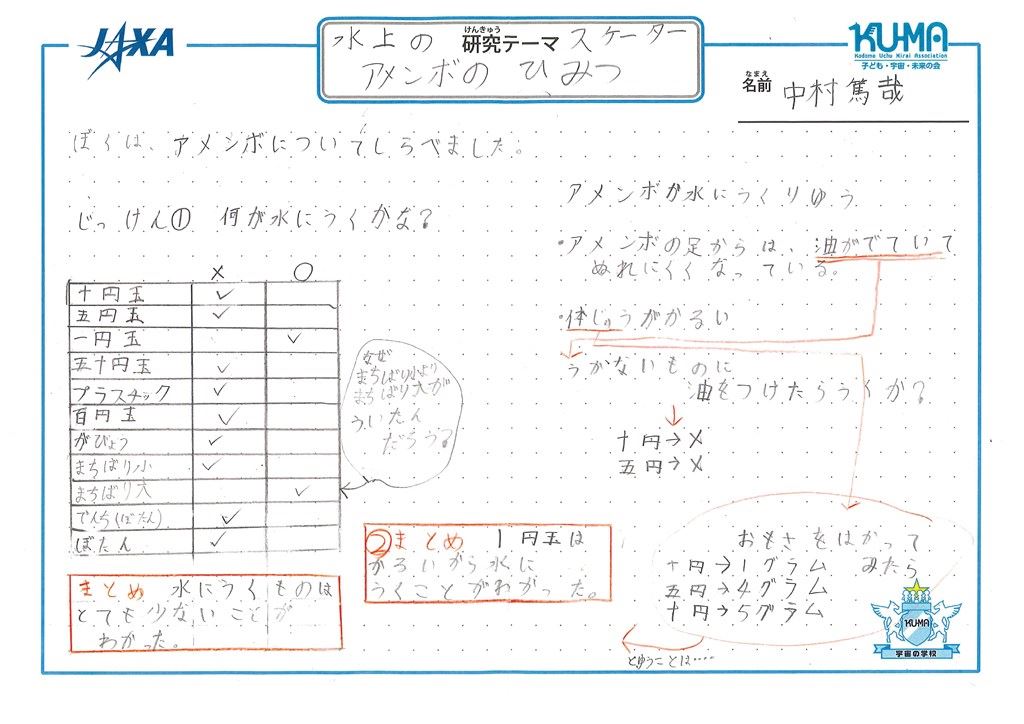 JAXA
けんきゅう
研究テーマ
水上の スケーター
アメンボの ひみつ
KU-MA
Kodomo Uchu Mirai Association
子ども・宇宙・未来の会
なまえ
名前 中村篤哉
ぼくは、アメンボについてしらべました。
じっけん① 何が水にうくかな?
× ○
十円玉 ✓
五円玉 ✓
一円玉 ✓
五十円玉 ✓
プラスチック ✓
百円玉 ✓
がびょう ✓
まちばり小 ✓
まちばり大 ✓
でんち(ぼたん) ✓
ぼたん ✓
なぜ
まちばり小より
まちばり大が
ういたん
だろう?
まとめ 水にうくものは
とても少ないことが
わかった。
②まとめ 1円玉は
かるいから水に
うくことがわかった。
アメンボが水にうくりゆう
・アメンボの足からは、油がでていて
ぬれにくくなっている。
・体じゅうがかるい
うかないものに
油をつけたらうくか?
十円→×
五円→×
おもさをはかって
みたら
十円→1グラム
五円→4グラム
十円→5グラム
とゆうことは‥‥
KUMA
宇宙の学校